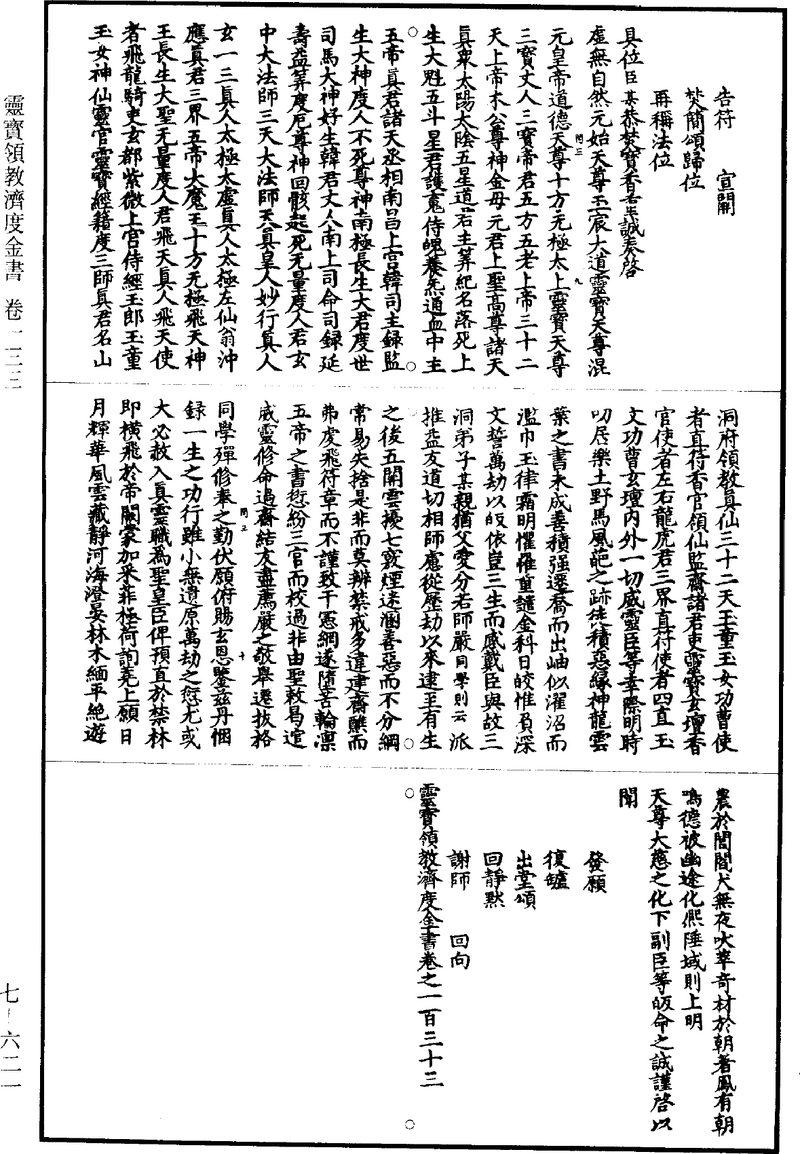 告符　宣關
焚簡頌歸位
再稱法位
具位臣某恭焚寶香虔誠奏啓
虛無自然元始天尊玉宸大道靈寶天尊混
元皇帝道德天尊十方元極太上靈寶天尊
三寶丈人三寶帝君五方五老上帝三十二
天上帝木公尊神金母元君上聖高尊諸天
眞衆太陽太陰五星道君主筭紀名落死上
生大魁五斗星君護䰟侍魄養炁通血中主
五帝眞君諸天丞相南昌上宮韓司主録監
生大神度人不死尊神南極長生大君度世
司馬大神好生韓君丈人南上司命司録延
壽益筭度厄尊神回骸起死无量度人君玄
中大法師三天大法師天眞皇人妙行眞人
玄一三眞人太極太虛眞人太極左仙翁沖
應眞君三界五帝大魔王十方无極飛天神
王長生大聖无量度人君飛天眞人飛天使
者飛龍騎吏玄都紫微上宮侍經玉郎玉童
玉女神仙靈官靈寶經籍度三師眞君名山
洞府領教眞仙三十二天玉童玉女功曹使
者直符香官領仙監齋諸君吏靈寶玄壇香
官使者左右龍虎君三界直符使者四直玉
文功曹玄壇內外一切威靈臣等幸際明時
叨居樂土野馬風葩之跡徒積惡緣神龍雲
葉之書未成善積强遷喬而出岫似濯沼而
濫巾玉律霜明懼罹重譴金科日皎惟負深
文誓萬劫以皈依豈三生而感戴臣與故三
洞弟子某親猶父愛分若師嚴同學則云派
推益友道切相師處從歷劫以來逮至有生
之後五關雲擾七竅煙迷溷善惡而不分綱
常易失捨是非而莫辨禁戒多違建齋醮而
弗虔飛符章而不謹致干憲網遂隋苦輪凛
五帝之書愆紛三官而校過非由聖敕曷逭
威靈修命追齋結友盡薦嚴之敬舉遷拔格
同學殫修奉之勤伏願俯賜玄恩鑒茲丹悃
録一生之功行雖小無遺原萬劫之愆尤或
大必赦入眞靈職爲聖皇臣俾預直於禁林
即橫飛於帝闕蒙加采菲極荷詢蕘上願日
月輝華風雲藏靜河海澄晏林木緬平絶遊
農於閭閻犬無夜吠萃奇材於朝著鳳有朝
鳴德被幽途化熈陲域則上明
天尊大慈之化下副臣等皈命之誠謹啓以
聞
發願
復罏
出堂頌
回靜默
謝師　回向
靈寶領教濟度金書卷之一百三十三
靈寶領教濟度金書　卷一三三
七—六二一